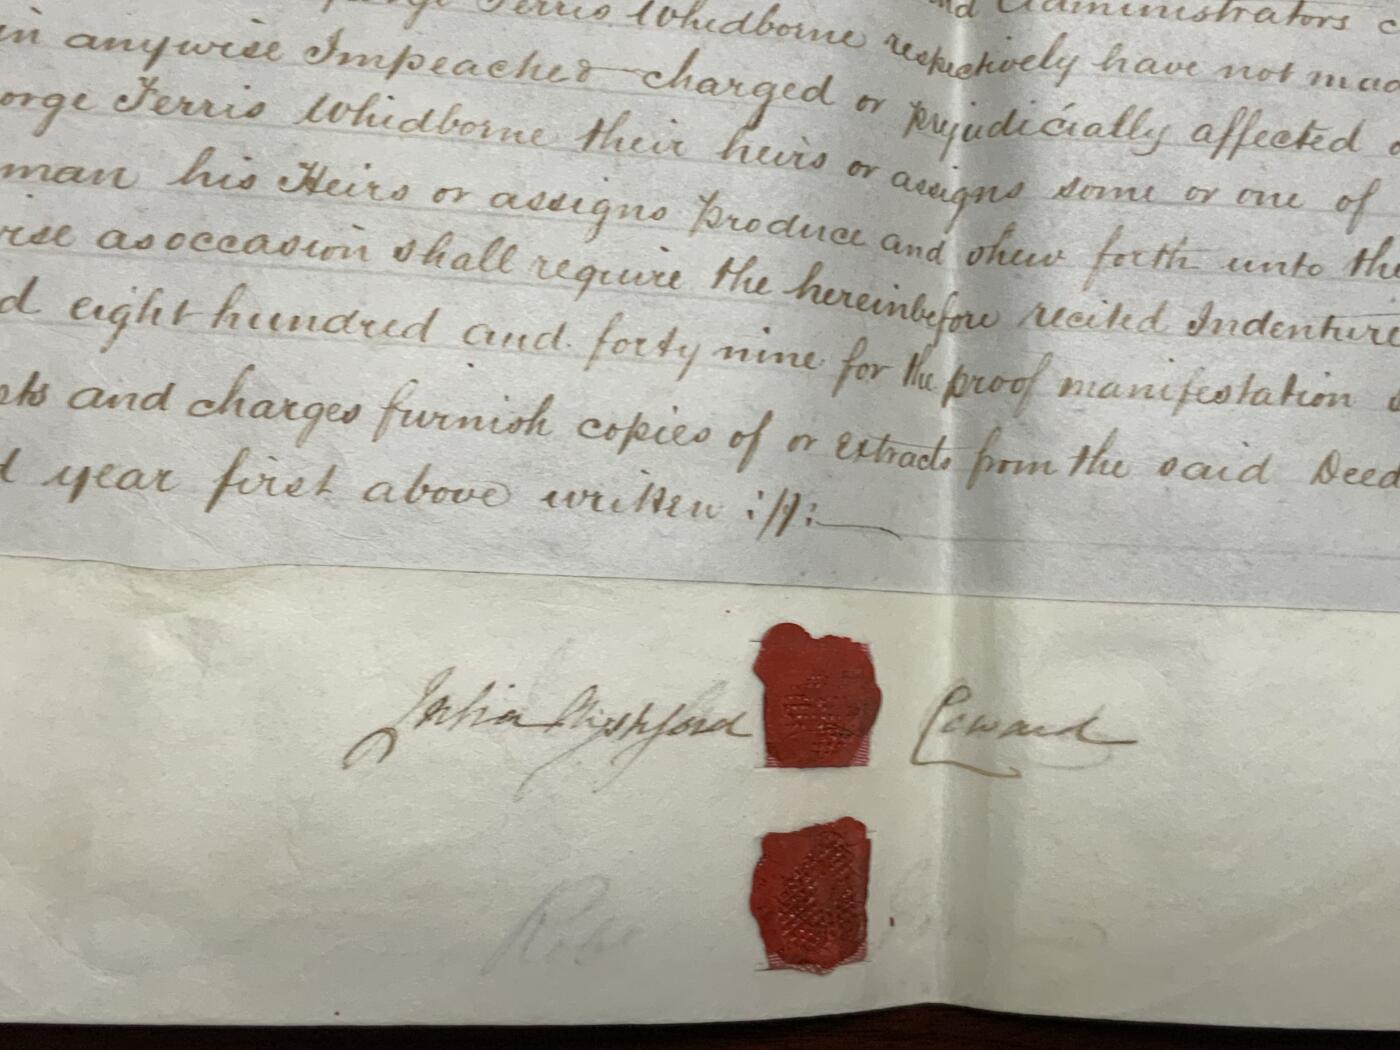 Ferris Whidborne respectively have not mad
in anywise Impeached charged or prejudicially affected
orge Ferris Whidborne their heirs or assigns some or one of
man his Heirs or assigns produce and shew forth unto the
ise as occasion shall require the hereinbefore recited Indenture
d eight hundred and forty nine for the proof manifestation
sts and charges furnish copies of or extracts from the said Deed
d year first above written ://:
and Administrators
Julia